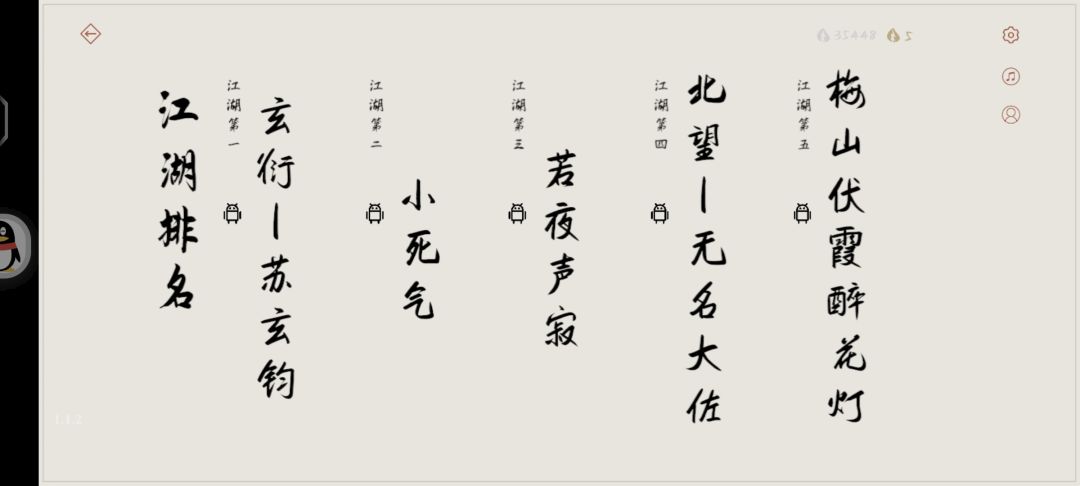 35448
5
江湖排名
江湖第一
玄衍－苏玄钧
江湖第二
小死气
江湖第三
若夜声寂
江湖第四
北望－无名大佐
江湖第五
梅山伏霞醉花灯
1.1.2